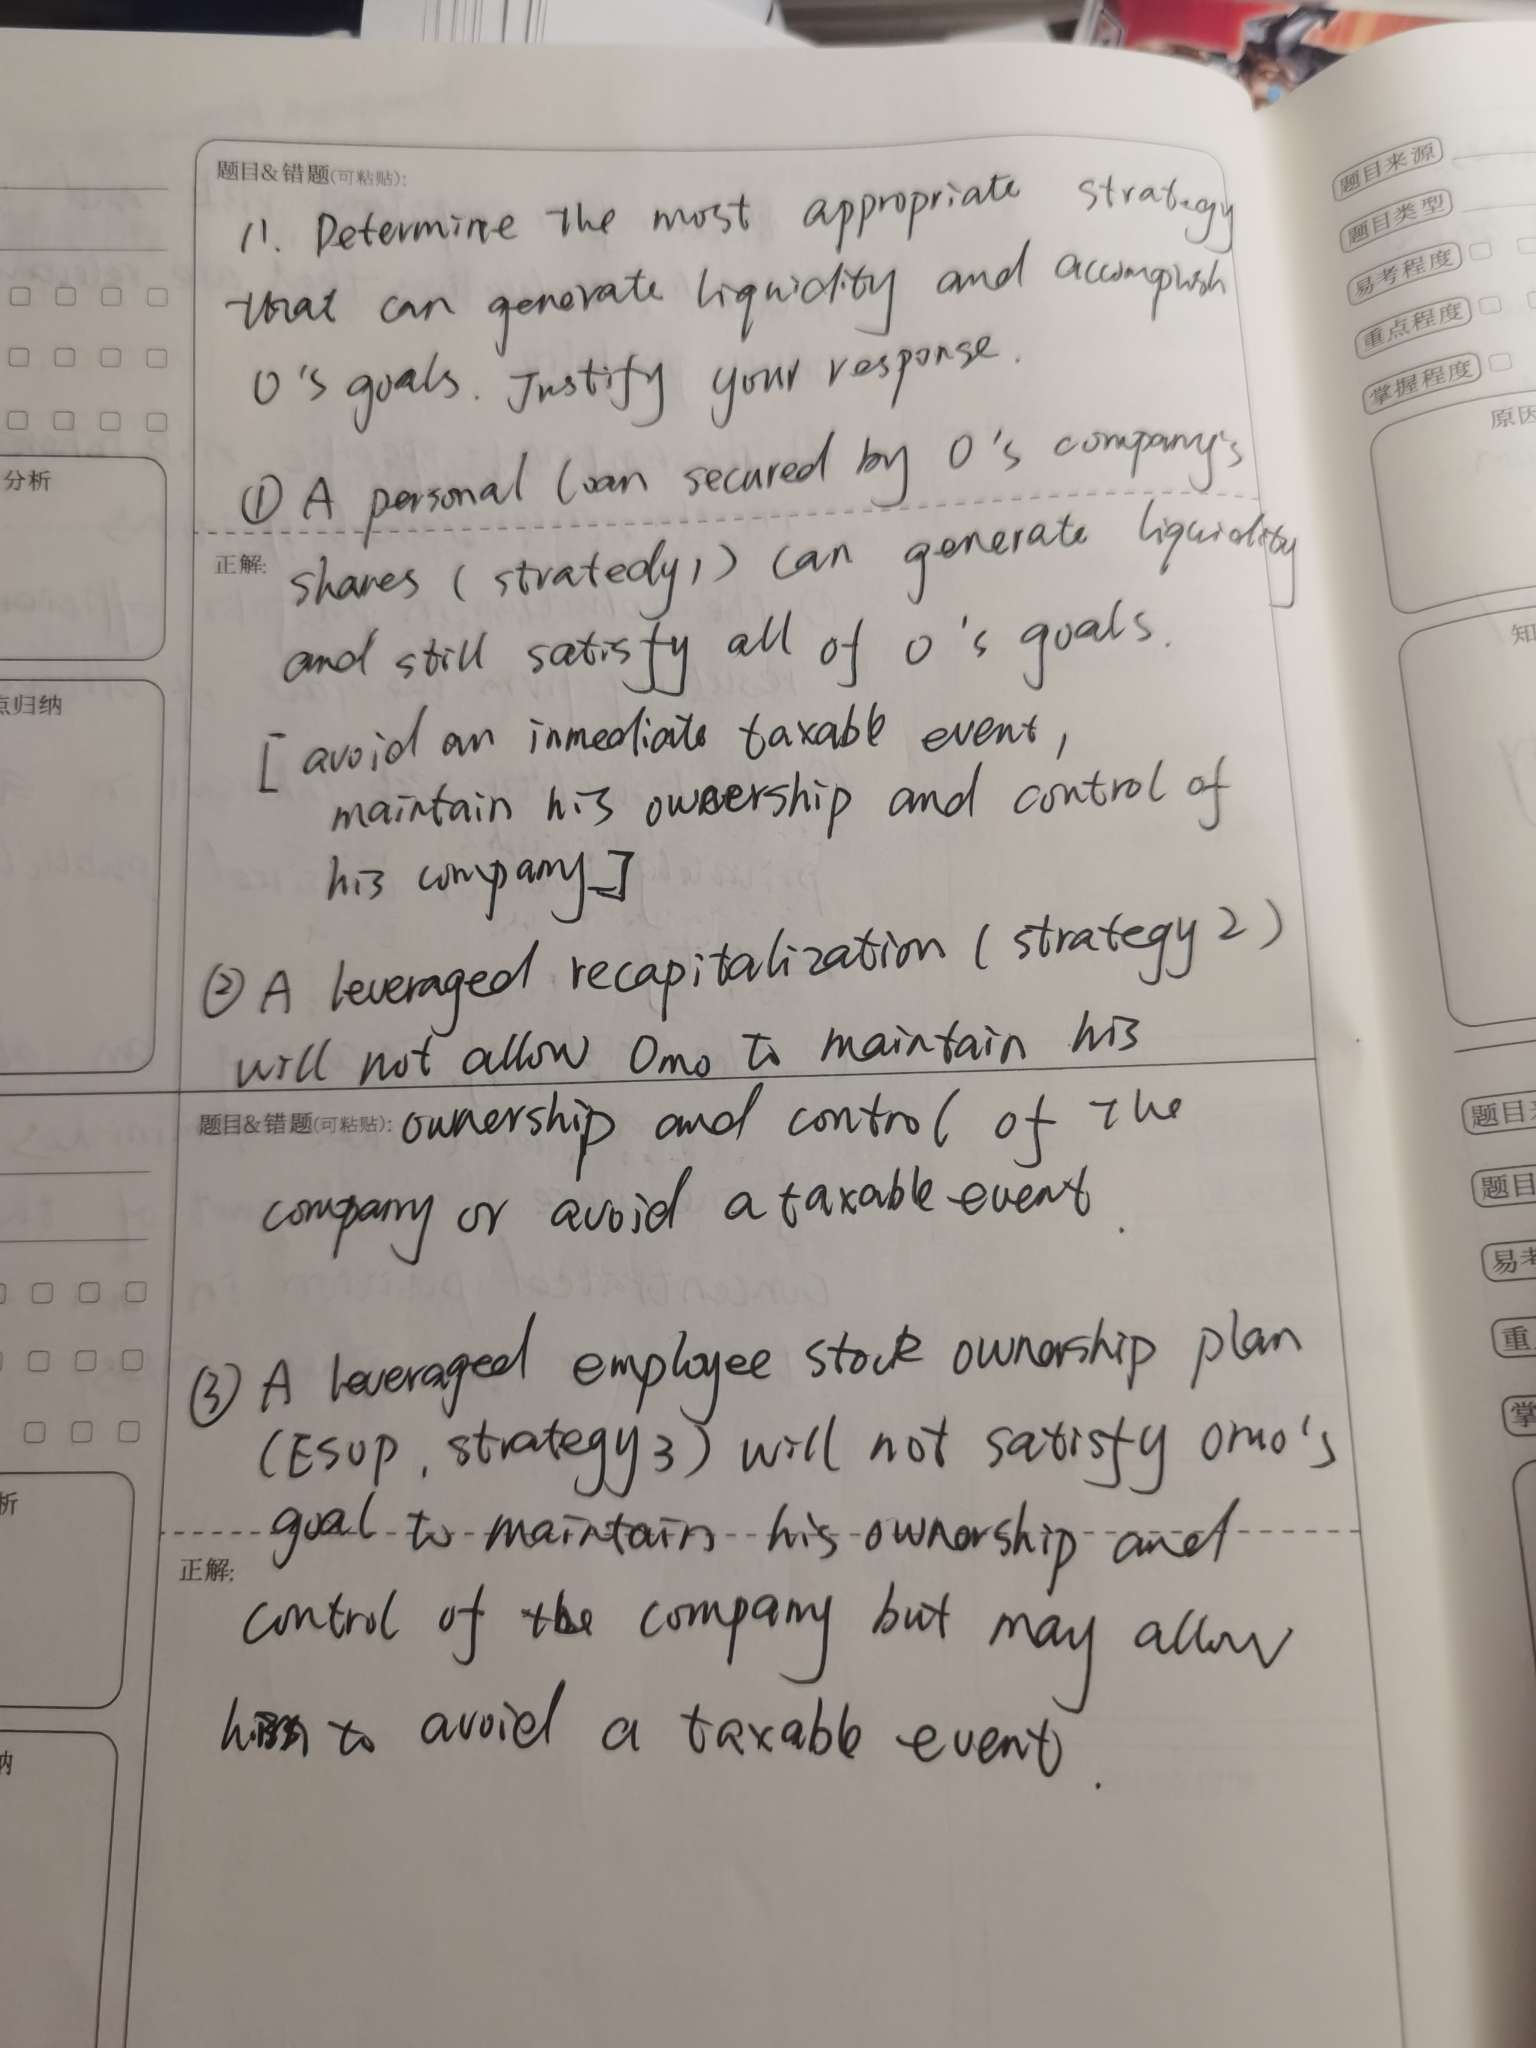 题目&错题(可粘贴):
11. Determine the most appropriate strategy
that can generate liquidity and accomplish
O's goals. Justify your response.
① A personal loan secured by O's company's
正解:
shares (stratedy1) can generate liquidity
and still satisfy all of O's goals.
[avoid an inmediate taxable event,
maintain his ownership and control of
his company]
② A leveraged recapitalization (strategy 2)
will not allow Omo to maintain his
题目&错题(可粘贴): ownership and control of the
company or avoid a taxable event.
③ A leveraged employee stock ownership plan
(ESOP, strategy 3) will not satisfy Omo's
goal to maintain his ownership and
正解:
control of the company but may allow
him to avoid a taxable event.
分析
点归纳
析
纳
题目来源
题目类型
易考程度
重点程度
掌握程度
原因
知
题目来
题目
易考
重
掌